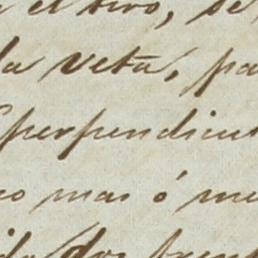 el tiro, se
la veta, pa
perpendicu
mas ó me
dos